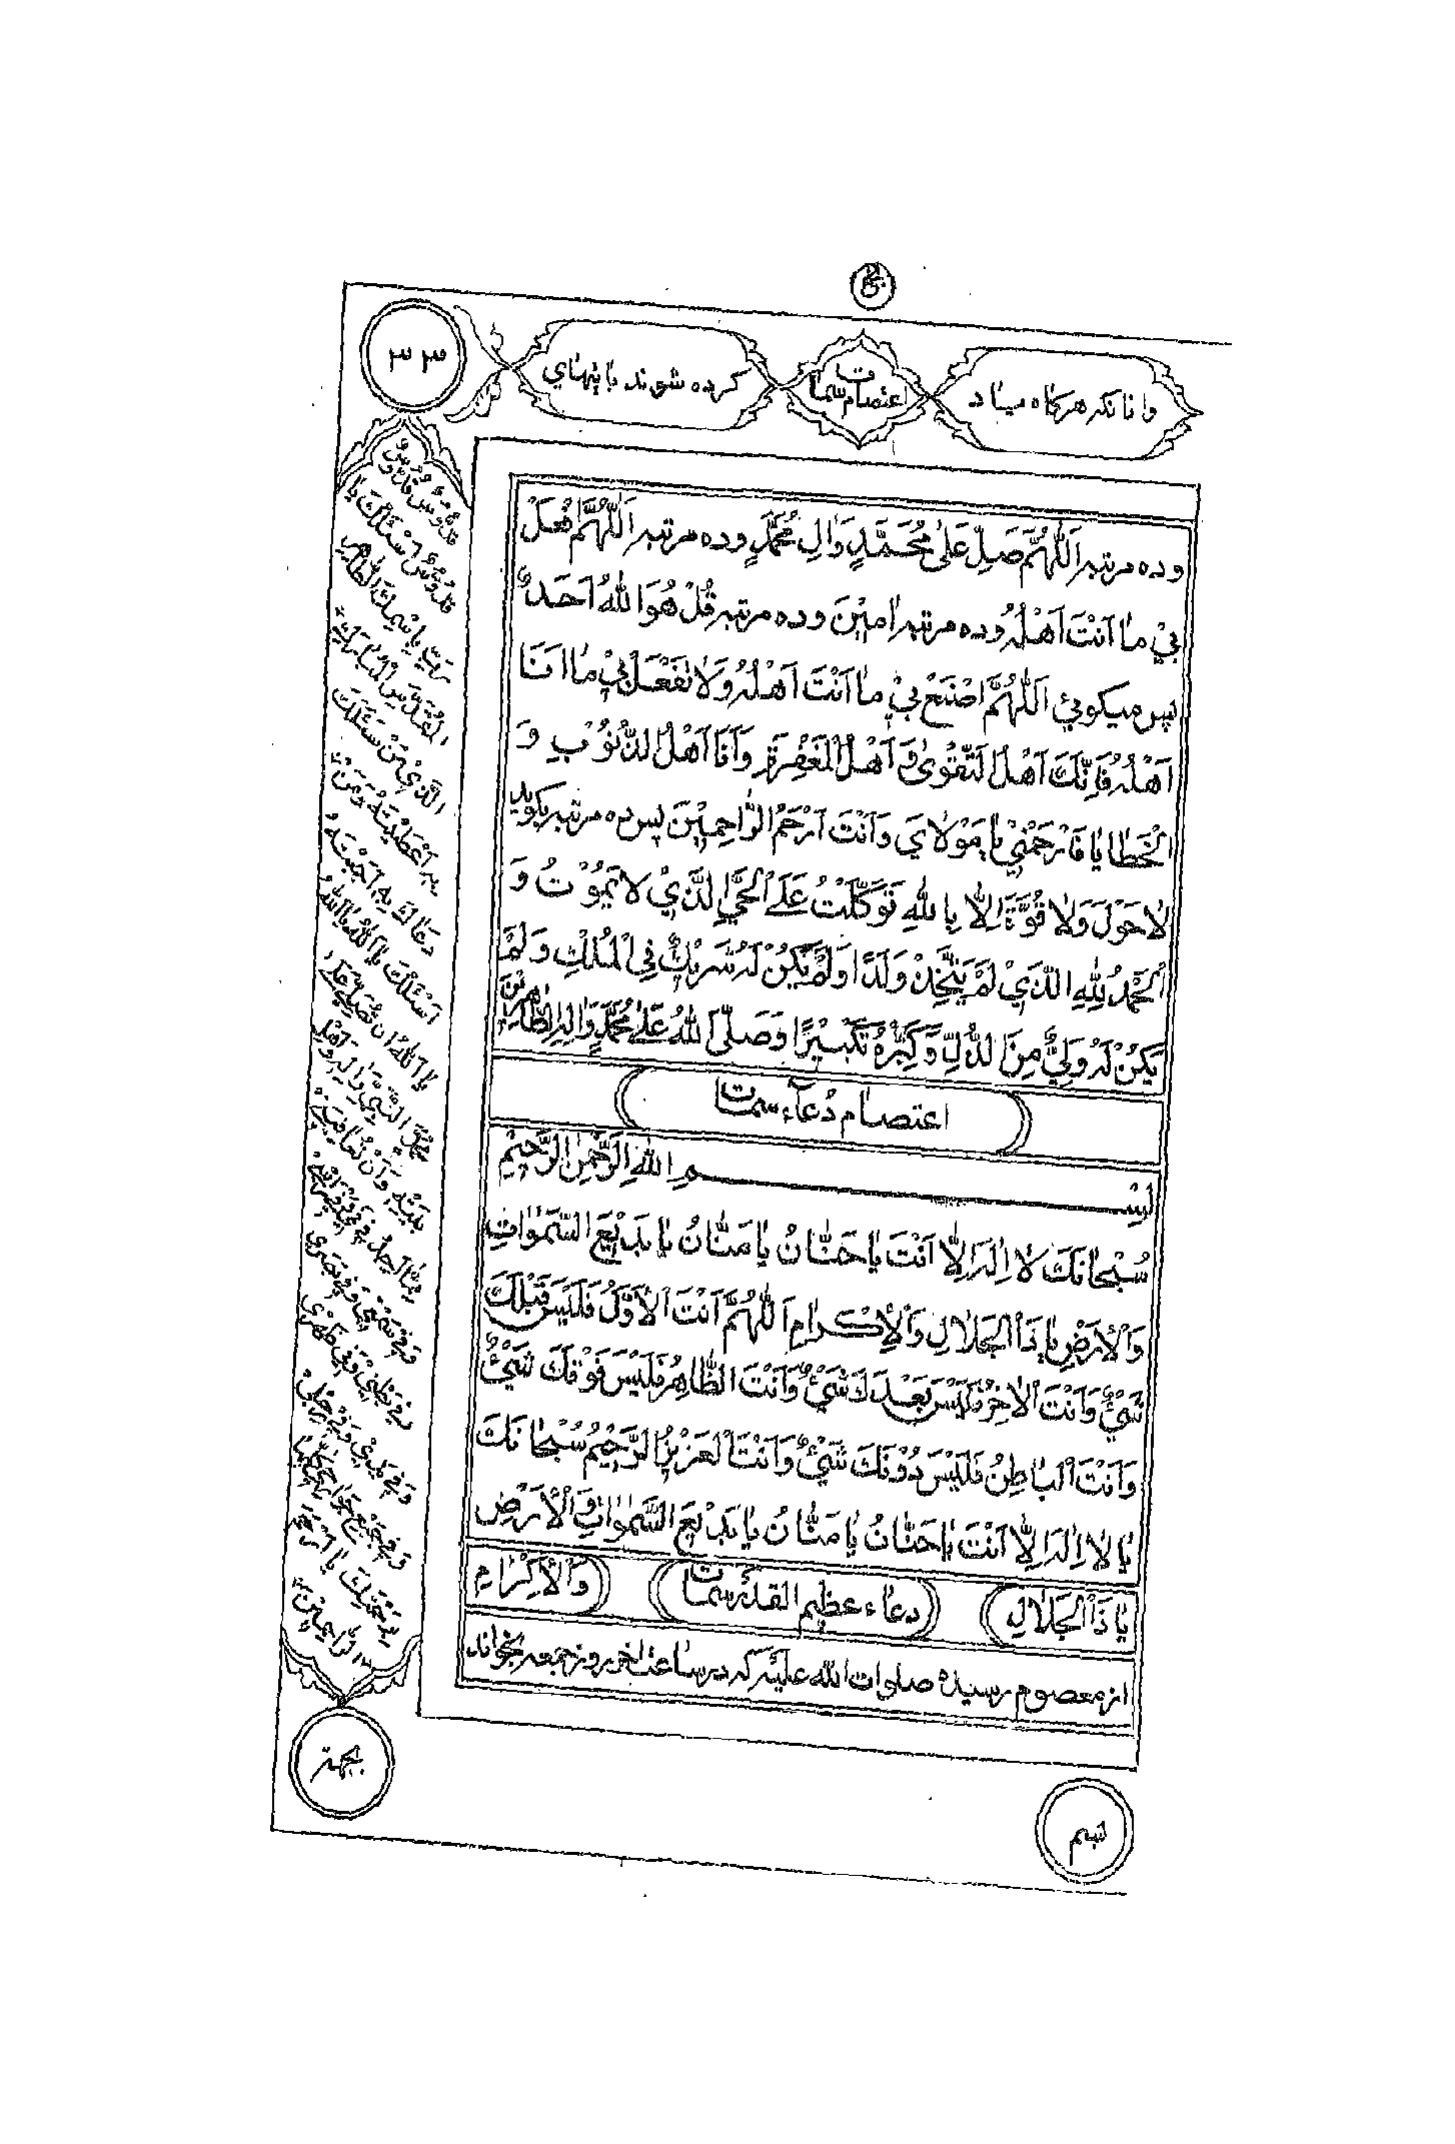 وانانکه هرکاه میناد
اعتصام سمات
کرده شوند بانهای
۳۳
وده مرتبه اَللّٰهُمَّ صَلِّ عَلىٰ مُحَمَّدٍ وَاٰلِ مُحَمَّدٍ وده مرتبه اَللّٰهُمَّ افْعَلْ
بِيْ مٰا اَنْتَ اَهْلُهُ وده مرتبه اٰمِيْنَ وده مرتبه قُلْ هُوَ اللّٰهُ اَحَدٌ
پس میکوئي اَللّٰهُمَّ اصْنَعْ بِيْ مٰا اَنْتَ اَهْلُهُ وَلاٰ تَفْعَلْ بِيْ مٰا اَنَا
اَهْلُهُ فَاِنَّكَ اَهْلُ التَّقْوىٰ وَ اَهْلُ الْمَغْفِرَةِ وَاَنَا اَهْلُ الذُّنُوْبِ وَ
الْخَطٰايٰا فَارْحَمْنِيْ يٰا مَوْلاٰيَ وَاَنْتَ اَرْحَمُ الرّٰاحِمِيْنَ پس ده مرتبه بکوید
لاٰ حَوْلَ وَلاٰ قُوَّةَ اِلاّٰ بِاللّٰهِ تَوَكَّلْتُ عَلَى الْحَيِّ الَّذِيْ لاٰ يَمُوْتُ وَ
الْحَمْدُ لِلّٰهِ الَّذِيْ لَمْ يَتَّخِذْ وَلَدًا وَلَمْ يَكُنْ لَهُ شَرِيْكٌ فِي الْمُلْكِ وَلَمْ
يَكُنْ لَهُ وَلِيٌّ مِنَ الذُّلِّ وَكَبِّرْهُ تَكْبِيْرًا وَصَلَّى اللّٰهُ عَلىٰ مُحَمَّدٍ وَاٰلِهِ الطّٰاهِرِيْنَ
اعتصام دُعآء سمات
بِسْمِ اللّٰهِ الرَّحْمٰنِ الرَّحِيْمِ
سُبْحٰانَكَ لاٰ اِلٰهَ اِلاّٰ اَنْتَ يٰا حَنّٰانُ يٰا مَنّٰانُ يٰا بَدِيْعَ السَّمٰوٰاتِ
وَالْاَرْضِ يٰا ذَا الْجَلاٰلِ وَالْاِكْرٰامِ اَللّٰهُمَّ اَنْتَ الْاَوَّلُ فَلَيْسَ قَبْلَكَ
شَيْئٌ وَاَنْتَ الْاٰخِرُ فَلَيْسَ بَعْدَكَ شَيْئٌ وَاَنْتَ الظّٰاهِرُ فَلَيْسَ فَوْقَكَ شَيْئٌ
وَاَنْتَ الْبٰاطِنُ فَلَيْسَ دُوْنَكَ شَيْئٌ وَاَنْتَ الْعَزِيْزُ الرَّحِيْمُ سُبْحٰانَكَ
يٰا لاٰ اِلٰهَ اِلاّٰ اَنْتَ يٰا حَنّٰانُ يٰا مَنّٰانُ يٰا بَدِيْعَ السَّمٰوٰاتِ وَالْاَرْضِ
يٰا ذَا الْجَلاٰلِ دعاء عظیم القدر سمات وَالْاِكْرٰامِ
از معصوم رسیده صلوات الله علیه که در ساعت اخر روز جمعه بخواند
قُدُّوْسٌ قُدُّوْسٌ
قُدُّوْسٌ اَسْئَلُكَ يٰا
رَبِّ بِاسْمِكَ الطّٰاهِرِ
الْمُقَدَّسِ الْمُبٰارَكِ
الَّذِيْ مَنْ سَئَلَكَ
بِهِ اَعْطَيْتَهُ وَمَنْ
دَعٰاكَ بِهِ اَجَبْتَهُ
اَسْئَلُكَ يٰا اَللّٰهُ يٰا اَللّٰهُ
يٰا اَللّٰهُ اَنْ تُصَلِّيَ عَلىٰ
مُحَمَّدٍ النَّبِيِّ وَاٰلِهِ وَاَهْلِ
بَيْتِهِ وَاَنْ تُعٰافِيَنِيْ
مِمّٰا اَجِدُ فِيْ
وَفِيْ سَمْعِيْ وَفِيْ بَصَرِيْ
وَفِيْ بَطْنِيْ وَفِيْ ظَهْرِيْ
وَفِيْ يَدِيْ وَفِيْ رِجْلِيْ
وَفِيْ جَمِيْعِ جَوٰارِحِيْ
بِرَحْمَتِكَ يٰا اَرْحَمَ
الرّٰاحِمِيْنَ
بجهة